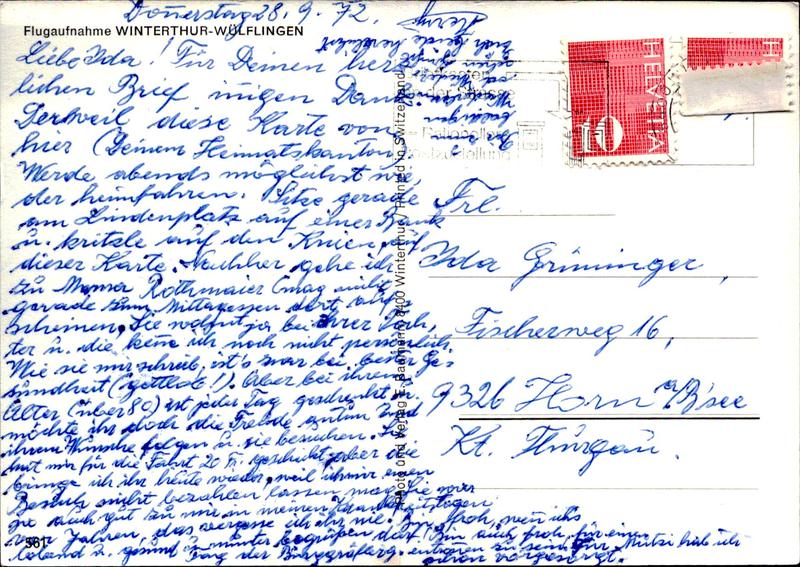 Donerstag 28. 9. 72.
Flugaufnahme WINTERTHUR-WÜLFLINGEN
Liebe Ida! Für Deinen herz-
lichen Brief innigen Dank
Derweil diese Karte von
hier (Deinem Heimatskanton
Werde abends möglichst wie
der heimfahren. Sitze gerade
am Lindenplatz auf einer Bank
u. kritzle auf den Knien, auf
dieser Karte. Nachher gehe ich
zu Rothmaier (mag nicht
gerade zum Mittagessen dort auf-
scheinen, Sie wohnt ja bei Ihrer Toch-
ter u. die kene ich noch nicht persönlich
Wie sie mir schrieb, ist's zwar bei bester Ge-
sundheit (gottlob!). Aber bei ihrem
Alter (über 80) ist jeder Tag geschenkt u.
möchte ihr doch die Freude antun und
ihrem Wunsche folgen u. sie besuchen. Sie
hat mir für die Fahrt 20 Fr. geschickt, aber die
bringe ich ihr heute wieder, weil ich mir einen
Besuch nicht bezahlen lassen mag. Sie war
ja auch gut zu mir in meinen
Jahren, das vergesse ich ihr nie. Bin froh, wen ich
lebend u. gesund u. munter begrüßen darf. Bin auch froh, für einen
Tag der entronen zu sein. Für Mutzi hab ich
schon vorgesorgt.
Herzy
Photo und Verlag E. Baumann, 8400 Winterthur / Printed in Switzerland
HELVETIA
10
HELVETIA
Frl.
Ida Grüninger,
Fischerweg 16,
9326 Horn a/B'see
Kt. Thurgau.
561